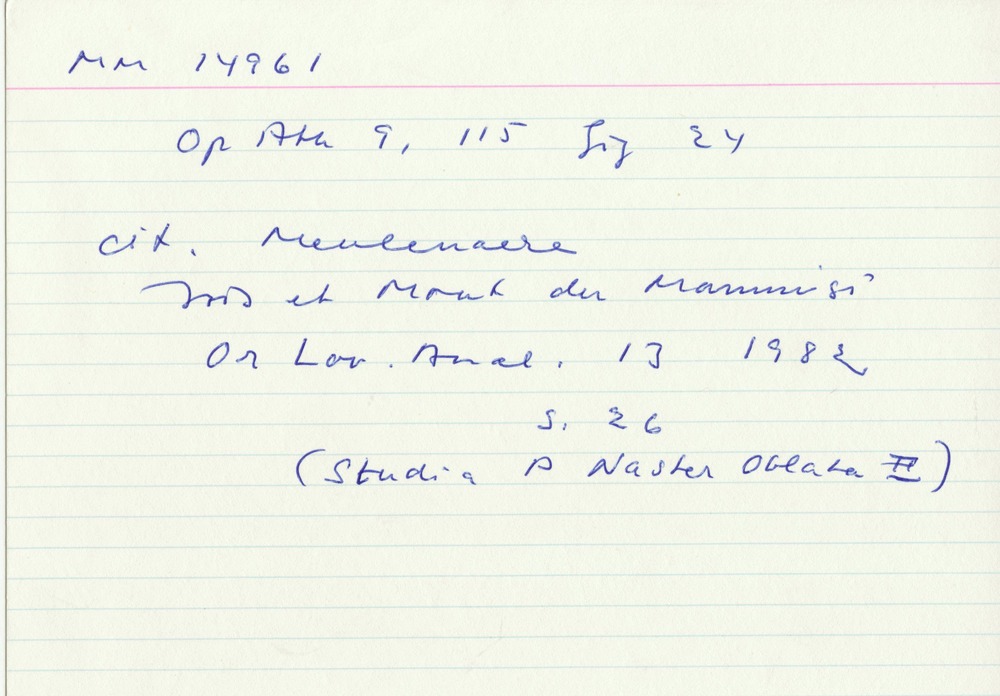 MM 14961
Op Ath 9, 115 fig 24
cit. Meulenaere
Isis et Mout du Mammisi
Or Lov. Anal. 13 1982
s. 26
(Studia P Naster Oblata II)